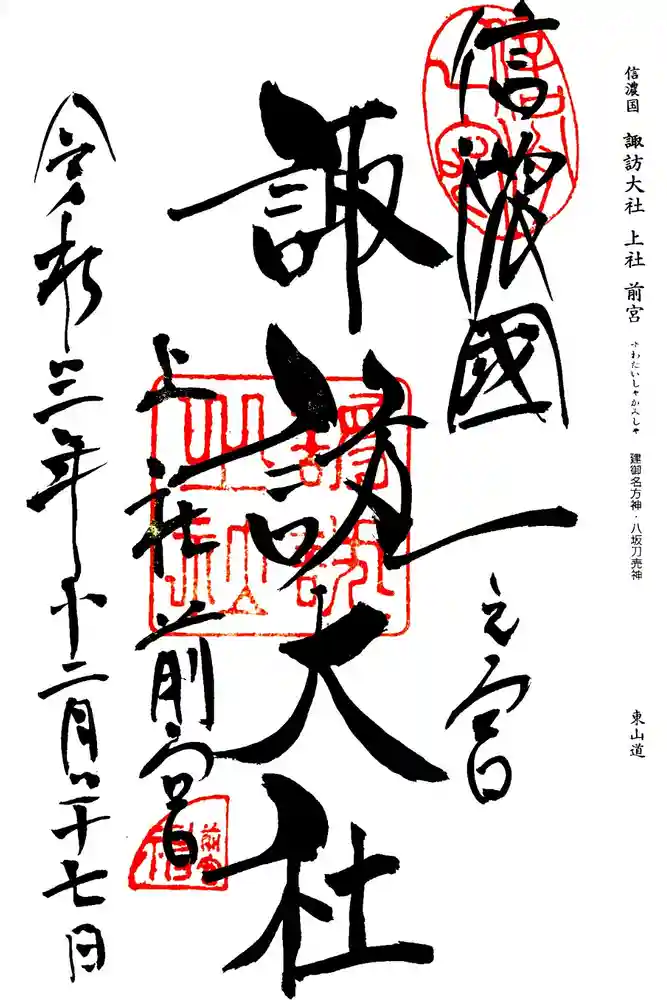 信濃国 諏訪大社 上社 前宮 すわたいしゃかみしゃ 建御名方神・八坂刀売神 東山道
信濃國一之宮
諏訪大社
上社前宮
令和三年十二月二十七日